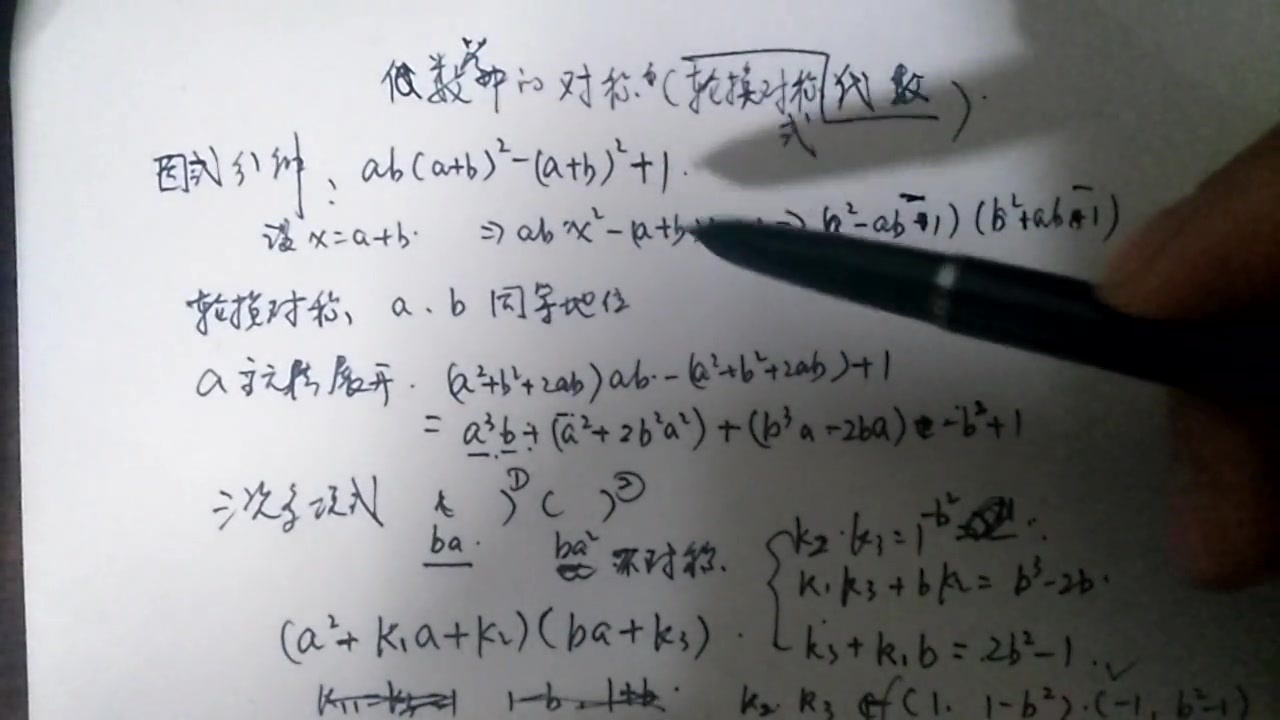 代数学中的对称(轮换对称代数式).
因式分解: ab(a+b)²-(a+b)²+1.
设 x=a+b. ⇒abx²-(a+b) ⇒ (b²-ab-1)(b²+ab-1)
轮换对称、a、b 同等地位
a 主元降展开. (a²+b²+2ab)ab-(a²+b²+2ab)+1
= a³b+(-a²+2b²a²)+(b³a-2ba)-b²+1
三次多项式 ( )①( )②
ba. ba² 不对称.
k₂·k₃=1-b²
k₁k₃+bk₂=b³-2b.
(a²+k₁a+k₂)(ba+k₃).
k₃+k₁b=2b²-1.✓
1-b 1+b. k₂ k₃ (1. 1-b²).(-1, b²-1)